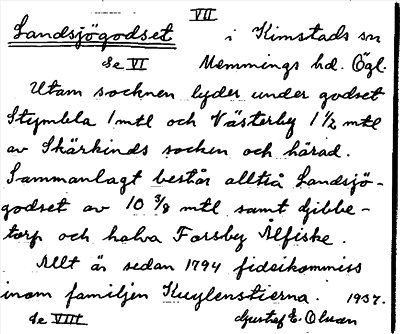 VII
Landsjögodset i Kimstads sn
Se VI Memmings hd. Ögl.
Utam socknen lyder under godset
Stymbla 1 mtl och Västerby 1 1/2 mtl
av Skärkinds socken och härad.
Sammanlagt består alltså Landsjö-
godset av 10 3/8 mtl samt djibbe-
torp och halva Forsby Ålfiske.
Allt är sedan 1794 fideikommiss
inom familjen Kuylenstierna. 1937.
Se VIII Gustaf E. Olsson